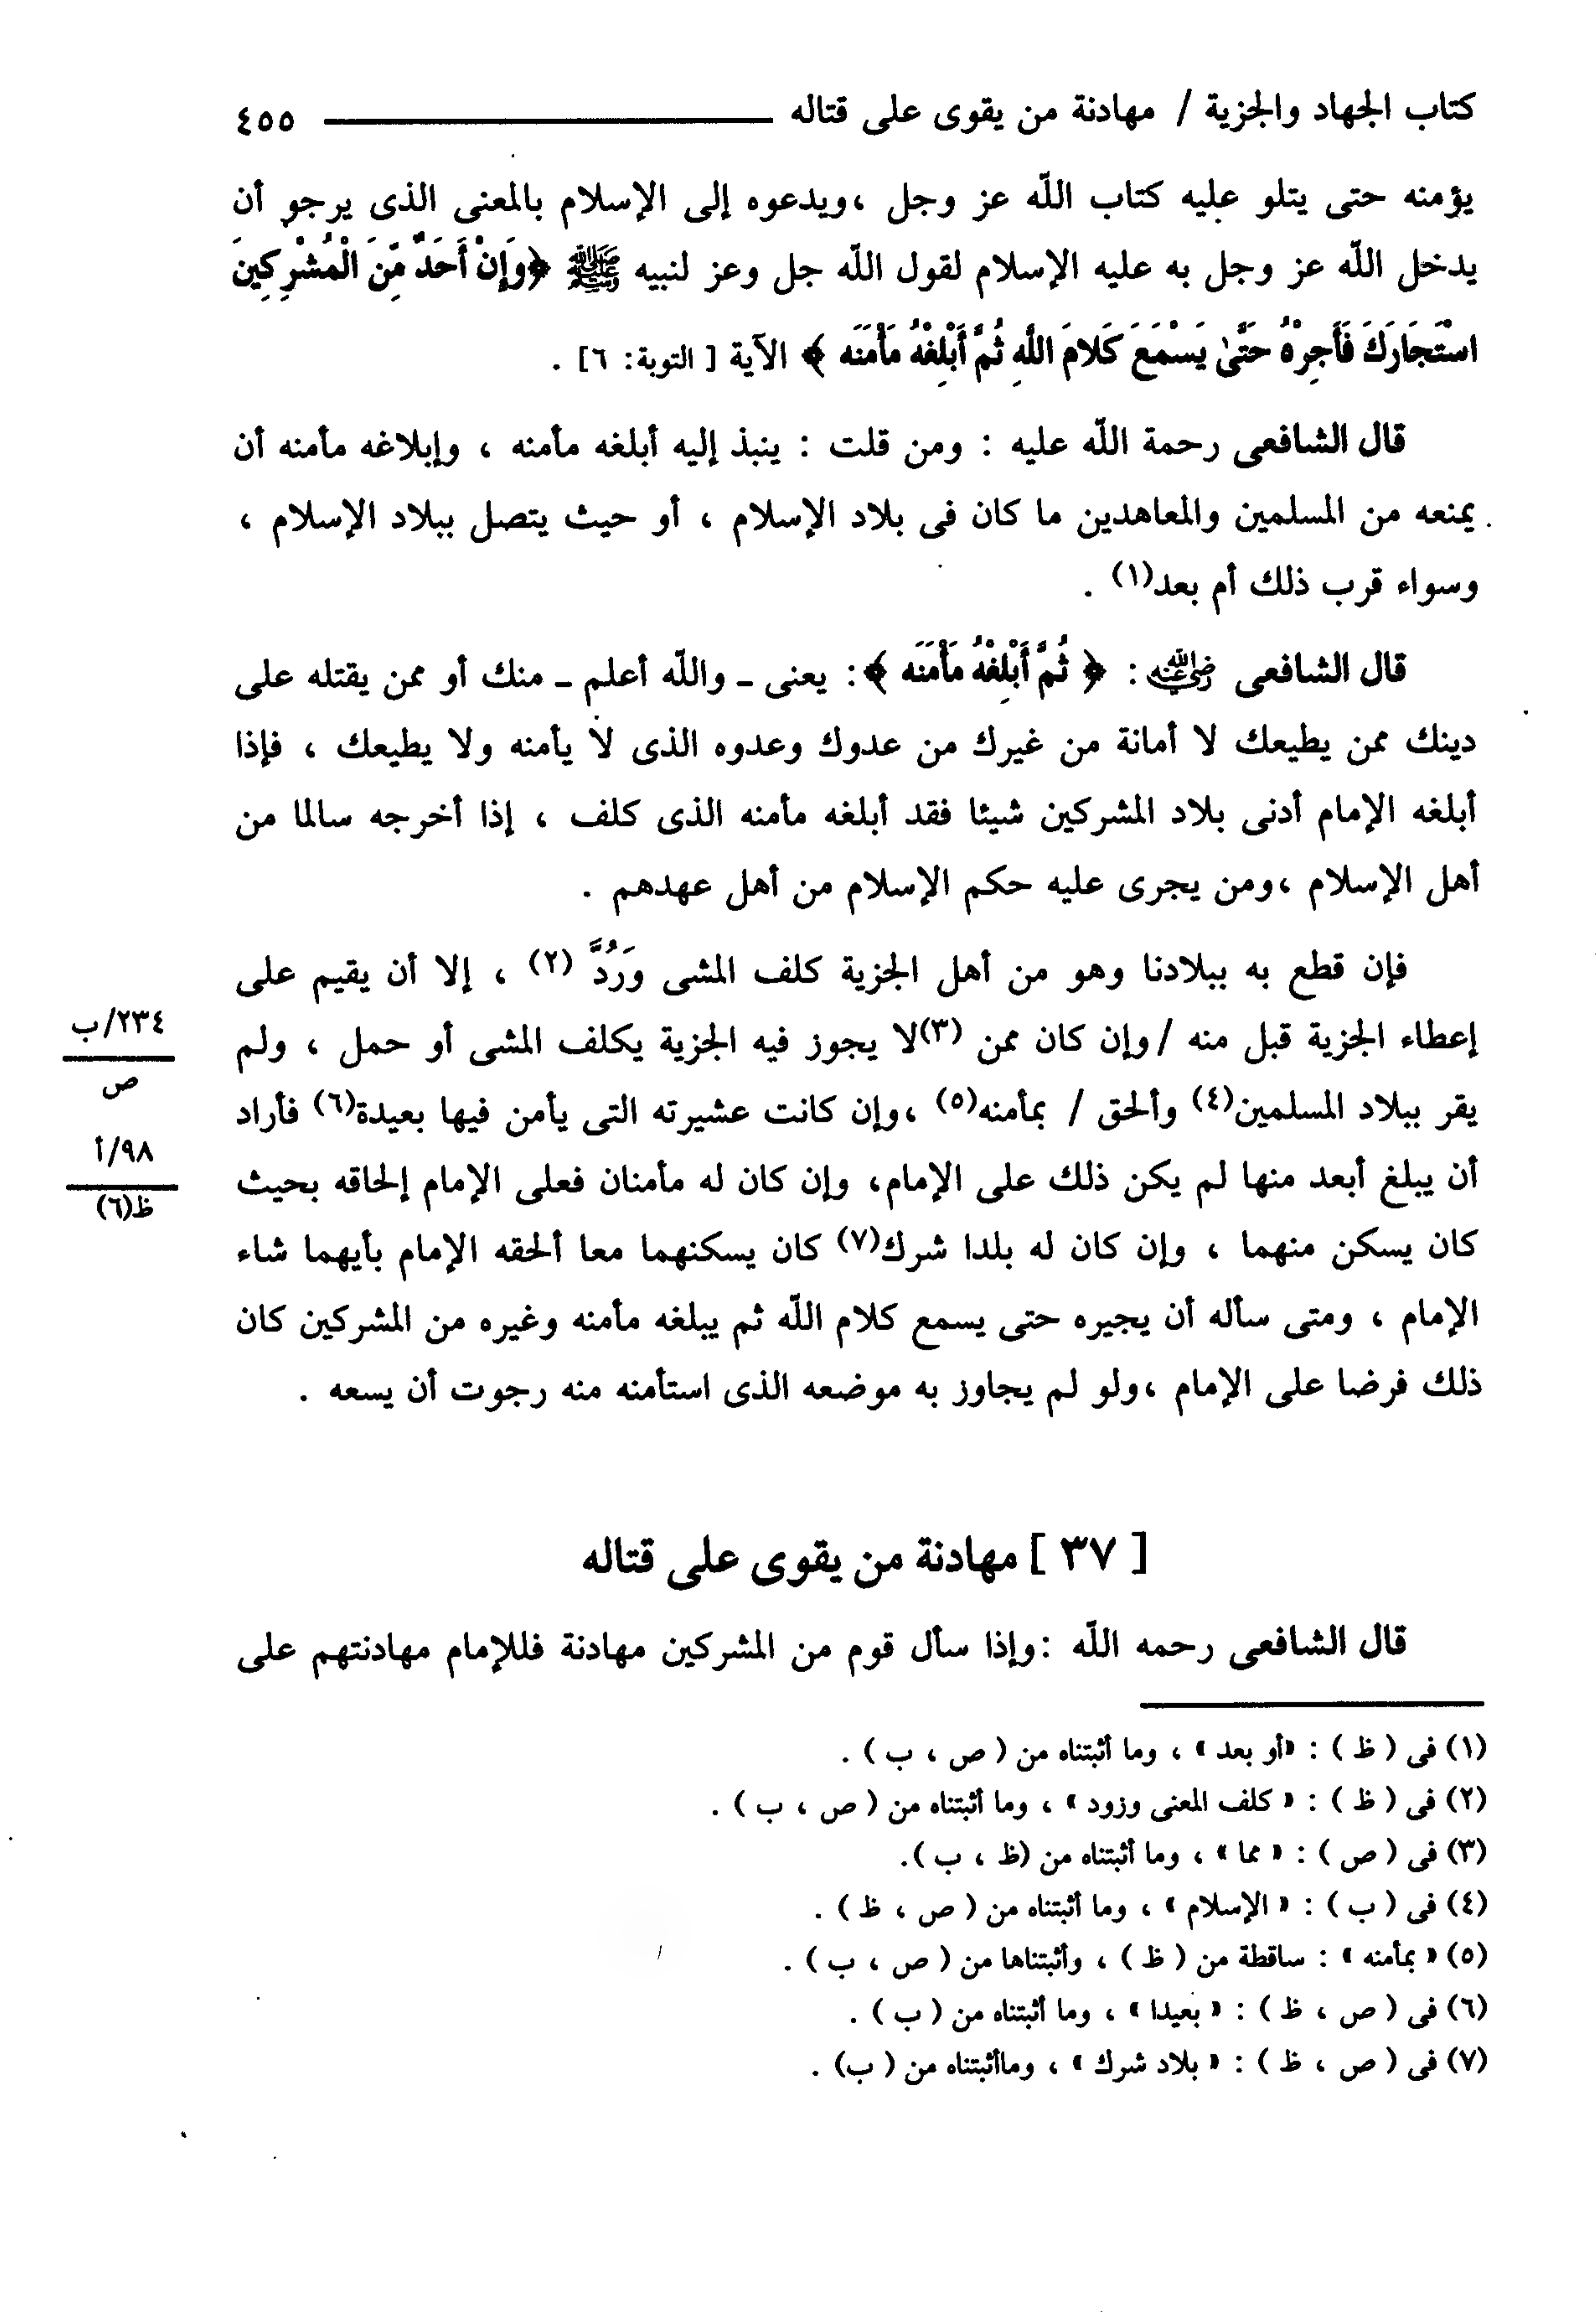 كتاب الجهاد والجزية / مهادنة من يقوى على قتاله ٤٥٥
يؤمنه حتى يتلو عليه كتاب اللّه عز وجل ،ويدعوه إلى الإسلام بالمعنى الذى يرجو أن
يدخل اللّه عز وجل به عليه الإسلام لقول اللّه جل وعز لنبيه ﷺ ﴿وَإِنْ أَحَدٌ مِّنَ الْمُشْرِكِينَ
اسْتَجَارَكَ فَأَجِرْهُ حَتَّىٰ يَسْمَعَ كَلامَ اللَّهِ ثُمَّ أَبْلِغْهُ مَأْمَنَه ﴾ الآية [ التوبة: ٦] .
قال الشافعى رحمة اللّه عليه : ومن قلت : ينبذ إليه أبلغه مأمنه ، وإبلاغه مأمنه أن
يمنعه من المسلمين والمعاهدين ما كان فى بلاد الإسلام ، أو حيث يتصل ببلاد الإسلام ،
وسواء قرب ذلك أم بعد(١) .
قال الشافعى رضي الله عنه : ﴿ ثُمَّ أَبْلِغْهُ مَأْمَنَه ﴾: يعنى ـ واللّه أعلم ـ منك أو ممن يقتله على
دينك ممن يطيعك لا أمانة من غيرك من عدوك وعدوه الذى لا يأمنه ولا يطيعك ، فإذا
أبلغه الإمام أدنى بلاد المشركين شيئا فقد أبلغه مأمنه الذى كلف ، إذا أخرجه سالما من
أهل الإسلام ،ومن يجرى عليه حكم الإسلام من أهل عهدهم .
فإن قطع به ببلادنا وهو من أهل الجزية كلف المشى وَرُدَّ (٢) ، إلا أن يقيم على
إعطاء الجزية قبل منه / وإن كان ممن (٣)لا يجوز فيه الجزية يكلف المشى أو حمل ، ولم
٢٣٤/ب
ص
يقر ببلاد المسلمين(٤) وألحق / بمأمنه(٥) ،وإن كانت عشيرته التى يأمن فيها بعيدة(٦) فأراد
٩٨/أ
ظ(٦)
أن يبلغ أبعد منها لم يكن ذلك على الإمام، وإن كان له مأمنان فعلى الإمام إلحاقه بحيث
كان يسكن منهما ، وإن كان له بلدا شرك(٧) كان يسكنهما معا ألحقه الإمام بأيهما شاء
الإمام ، ومتى سأله أن يجيره حتى يسمع كلام اللّه ثم يبلغه مأمنه وغيره من المشركين كان
ذلك فرضا على الإمام ،ولو لم يجاوز به موضعه الذى استأمنه منه رجوت أن يسعه .
[ ٣٧ ] مهادنة من يقوى على قتاله
قال الشافعى رحمه اللّه :وإذا سأل قوم من المشركين مهادنة فللإمام مهادنتهم على
(١) فى ( ظ ) : «أو بعد » ، وما أثبتناه من ( ص ، ب ) .
(٢) فى ( ظ ) : « كلف المعنى وزود » ، وما أثبتناه من ( ص ، ب ) .
(٣) فى ( ص ) : « مما » ، وما أثبتناه من (ظ ، ب ).
(٤) فى ( ب ) : « الإسلام » ، وما أثبتناه من ( ص ، ظ ) .
(٥) « بمأمنه » : ساقطة من ( ظ ) ، وأثبتناها من ( ص ، ب ) .
(٦) فى ( ص ، ظ ) : « بعيدا » ، وما أثبتناه من ( ب ) .
(٧) فى ( ص ، ظ ) : « بلاد شرك » ، وماأثبتناه من ( ب) .